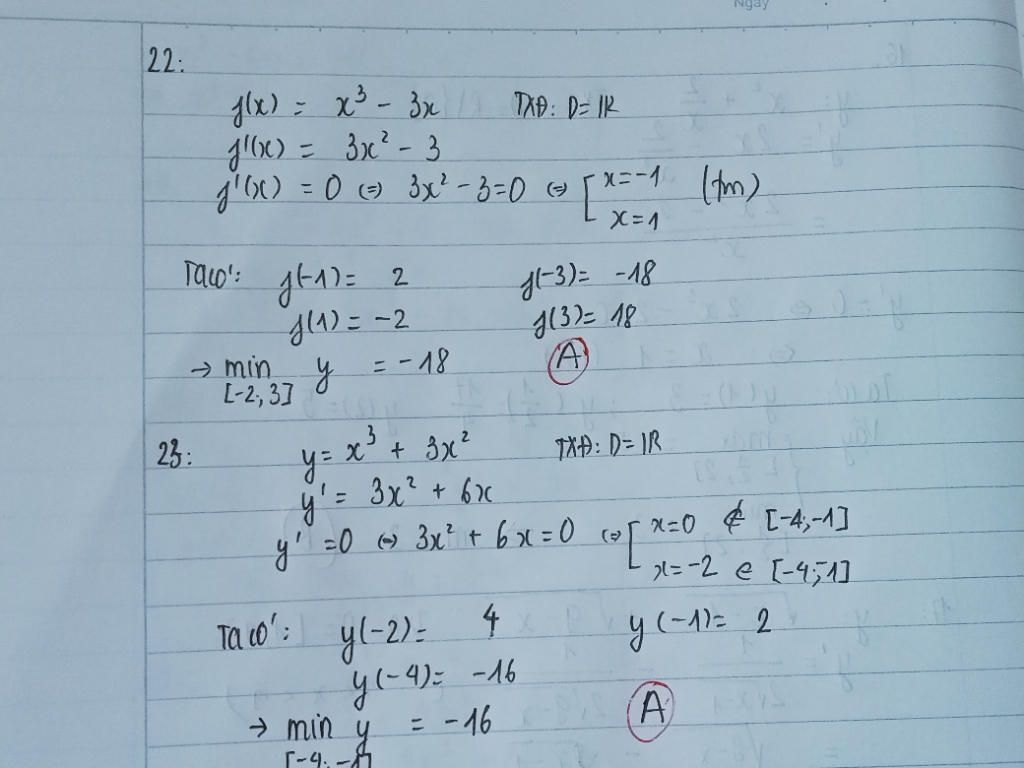 Ngày
22:
f(x) = x³ - 3x TXĐ: D = ℝ
f'(x) = 3x² - 3
f'(x) = 0 ⇔ 3x² - 3 = 0 ⇔ [ x = -1 (tm)
x = 1
Ta có: f(-1) = 2 f(-3) = -18
f(1) = -2 f(3) = 18
→ min y = -18 (A)
[-2; 3]
23: y = x³ + 3x² TXĐ: D = ℝ
y' = 3x² + 6x
y' = 0 ⇔ 3x² + 6x = 0 ⇔ [ x = 0 ∉ [-4; -1]
x = -2 ∈ [-4; -1]
Ta có: y(-2) = 4 y(-1) = 2
y(-4) = -16
→ min y = -16 (A)
[-4; -1]